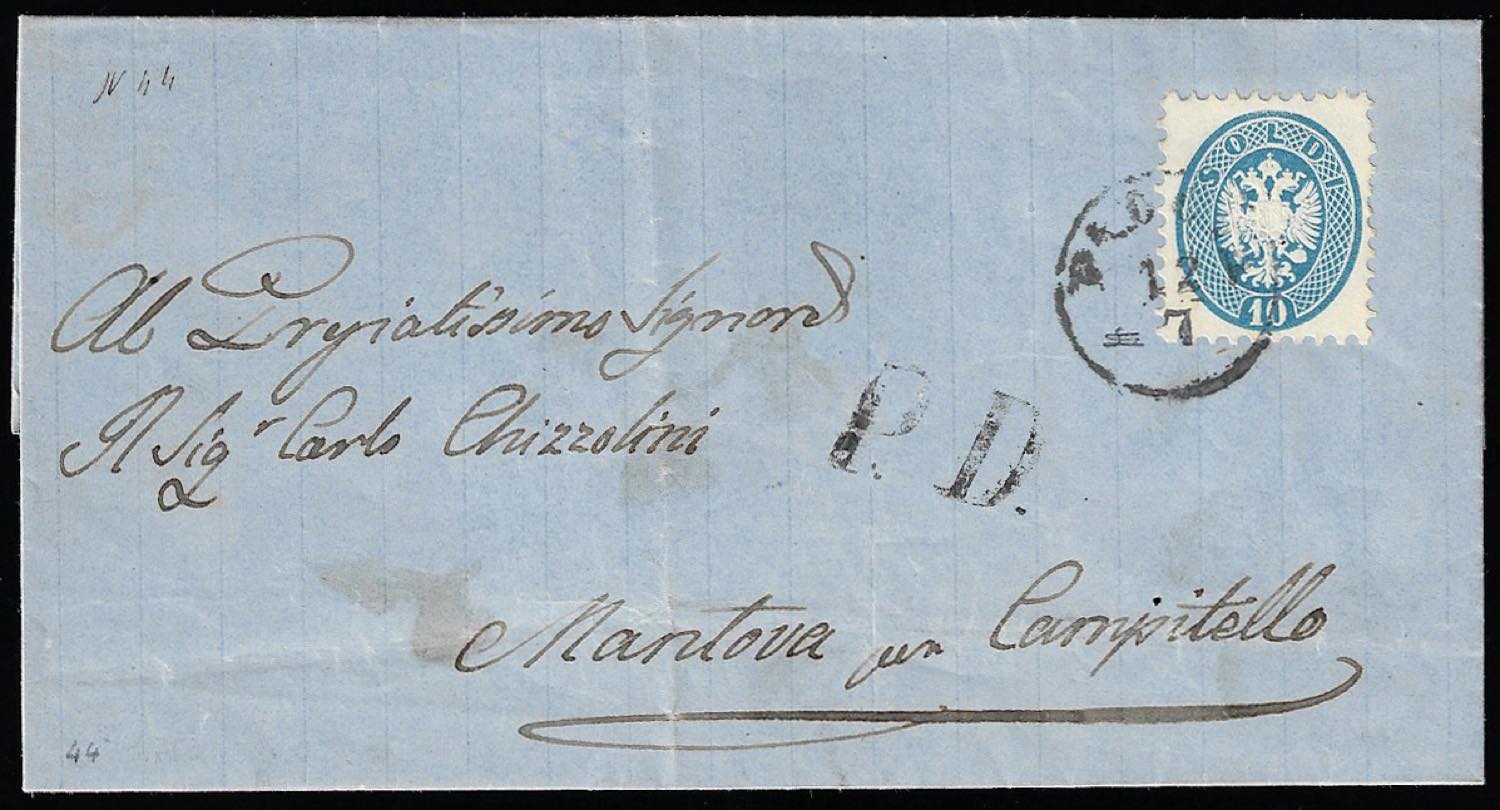 N 44
SOLDI
10
12
7
Al Pregiatissimo Signore
Il Sigr Carlo Chizzolini
P. D.
Mantova per Campitello
44